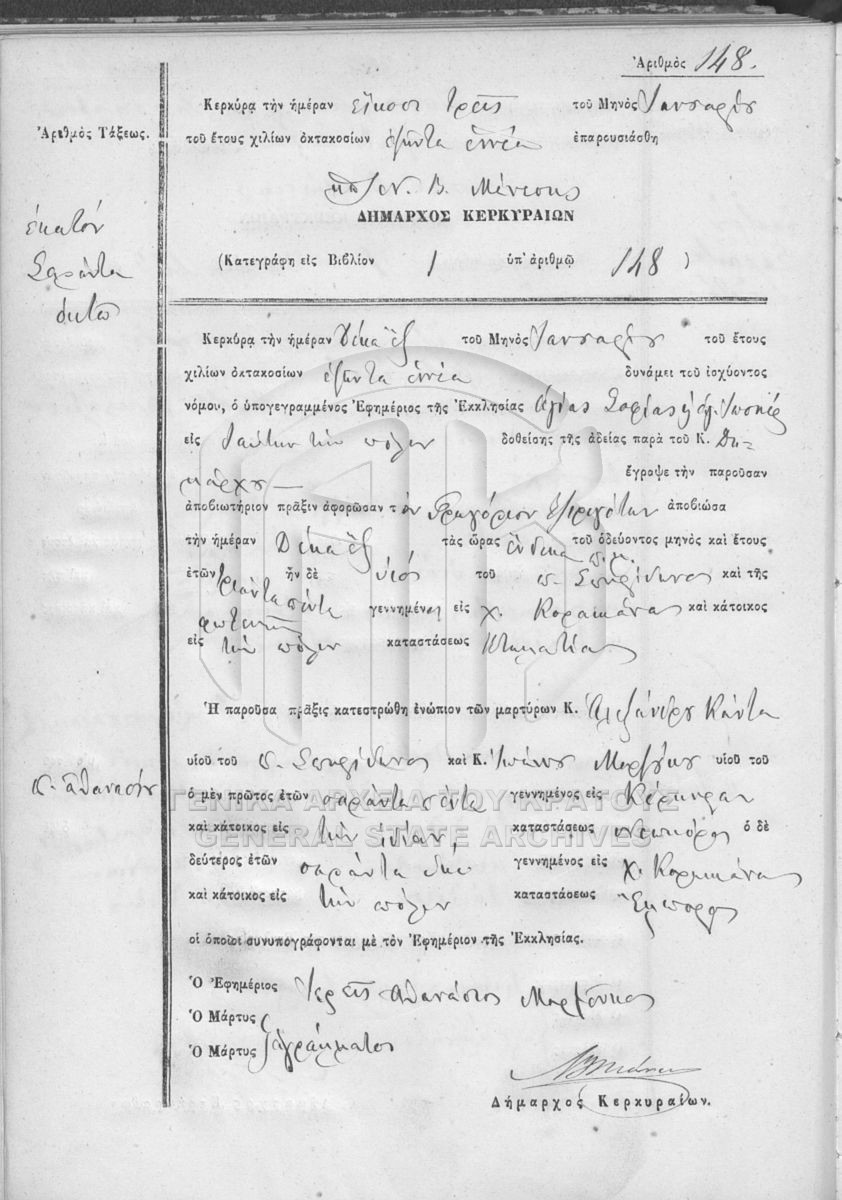 Ἀριθμὸς 148.
Κερκύρᾳ τὴν ἡμέραν εἴκοσι τρεῖς τοῦ Μηνὸς Ἰανουαρίου
Ἀριθμὸς Τάξεως.
τοῦ ἔτους χιλίων ὀκτακοσίων ἑξῆντα ἐννέα ἐπαρουσιάσθη
ἑκατὸν
σαράντα
ὀκτὼ
ΔΗΜΑΡΧΟΣ ΚΕΡΚΥΡΑΙΩΝ
(Κατεγράφη εἰς Βιβλίον 1 ὑπ' ἀριθμῷ 148 )
Κερκύρᾳ τὴν ἡμέραν Δέκα ἓξ τοῦ Μηνὸς Ἰανουαρίου τοῦ ἔτους
χιλίων ὀκτακοσίων ἑξῆντα ἐννέα δυνάμει τοῦ ἰσχύοντος
νόμου, ὁ ὑπογεγραμμένος Ἐφημέριος τῆς Ἐκκλησίας Ἁγίας Σοφίας ἢ ἁγ. Ἰωσὴφ
εἰς ταύτην τὴν πόλιν δοθείσης τῆς ἀδείας παρὰ τοῦ Κ. Δη-
μάρχου — ἔγραψε τὴν παροῦσαν
ἀποβιωτήριον πρᾶξιν ἀφορῶσαν τὸν Γρηγόριον ἀποβιώσα
τὴν ἡμέραν Δέκα ἓξ τὰς ὥρας ἕνδεκα π.μ. τοῦ ὁδεύοντος μηνὸς καὶ ἔτους
ἐτῶν τριάντα πέντε ἦν δὲ υἱὸς τοῦ π. Σπυρίδωνος καὶ τῆς
Φωτεινῆς γεννημένος εἰς χ. Κορακιάνας καὶ κάτοικος
εἰς τὴν πόλιν καταστάσεως
Ἡ παροῦσα πρᾶξις κατεστρώθη ἐνώπιον τῶν μαρτύρων Κ. Ἀλεξάνδρου Κάντα
υἱοῦ τοῦ π. Σπυρίδωνος καὶ Κ. Ἰωάννου Μαρζούκου υἱοῦ τοῦ
π. Ἀθανασίου
ὁ μὲν πρῶτος ἐτῶν σαράντα πέντε γεννημένος εἰς Κέρκυραν
καὶ κάτοικος εἰς τὴν ἰδίαν, καταστάσεως νεωκόρος ὁ δὲ
δεύτερος ἐτῶν σαράντα δύο γεννημένος εἰς χ. Κορακιάνας
καὶ κάτοικος εἰς τὴν πόλιν καταστάσεως Ἔμπορος
οἱ ὁποῖοι συνυπογράφονται μὲ τὸν Ἐφημέριον τῆς Ἐκκλησίας.
Ὁ Ἐφημέριος Ἱερεὺς Ἀθανάσιος Μαρζούκος
Ὁ Μάρτυς
Ὁ Μάρτυς ἀγράμματοι
Δήμαρχος Κερκυραίων.
ΓΕΝΙΚΑ ΑΡΧΕΙΑ ΤΟΥ ΚΡΑΤΟΥΣ
GENERAL STATE ARCHIVES